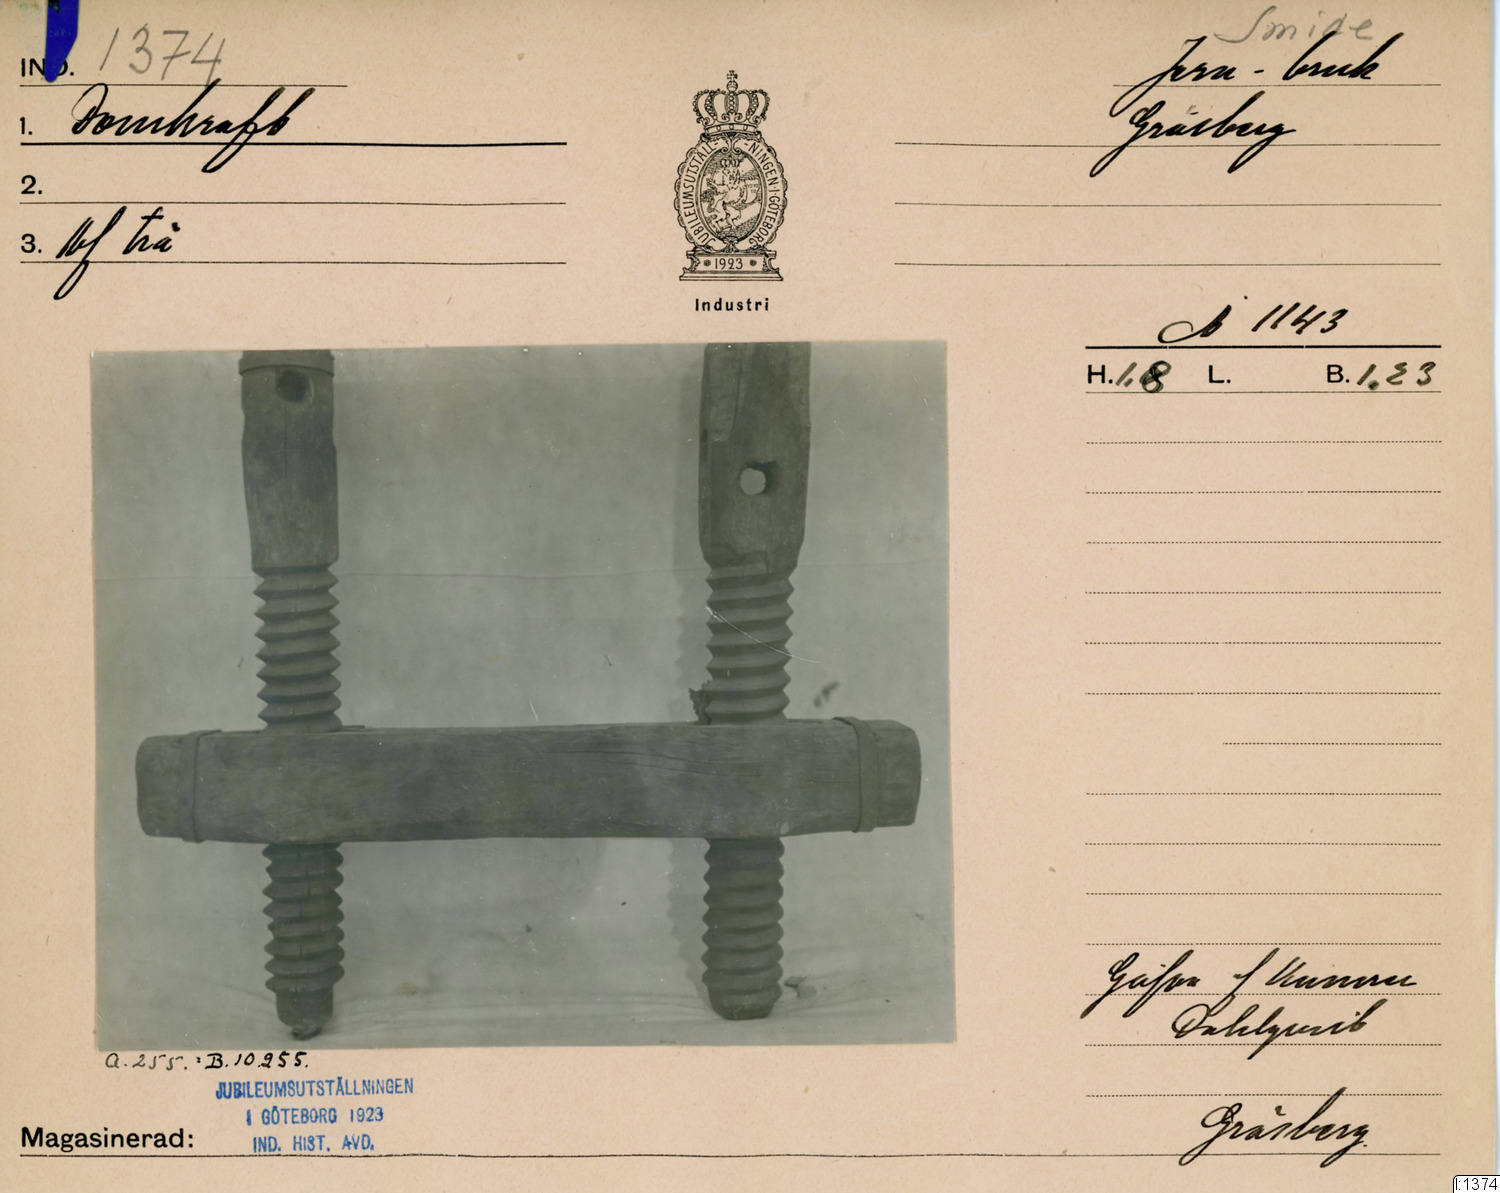 Smide
IND. 1374
Jern-bruk
1. Domkraft
Gräsberg
2.
3. Af trä
JUBILEUMSUTSTÄLLNINGEN I GÖTEBORG
1923
Industri
N 1143
H. 1.8 L. B. 1.23
Gåfva af
Dahlqvist
Gräsberg.
a. 255. : B. 10255.
JUBILEUMSUTSTÄLLNINGEN
I GÖTEBORG 1923
IND. HIST. AVD.
Magasinerad:
I:1374